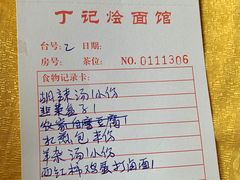 丁记烩面馆
台号: 2 日期:
房号: 茶位: NO.0111306
食物记录卡:
胡辣汤1小份
韭菜盒子1
农家自磨豆腐1
水煎包半份
羊杂汤1小份
西红柿鸡蛋打卤面1